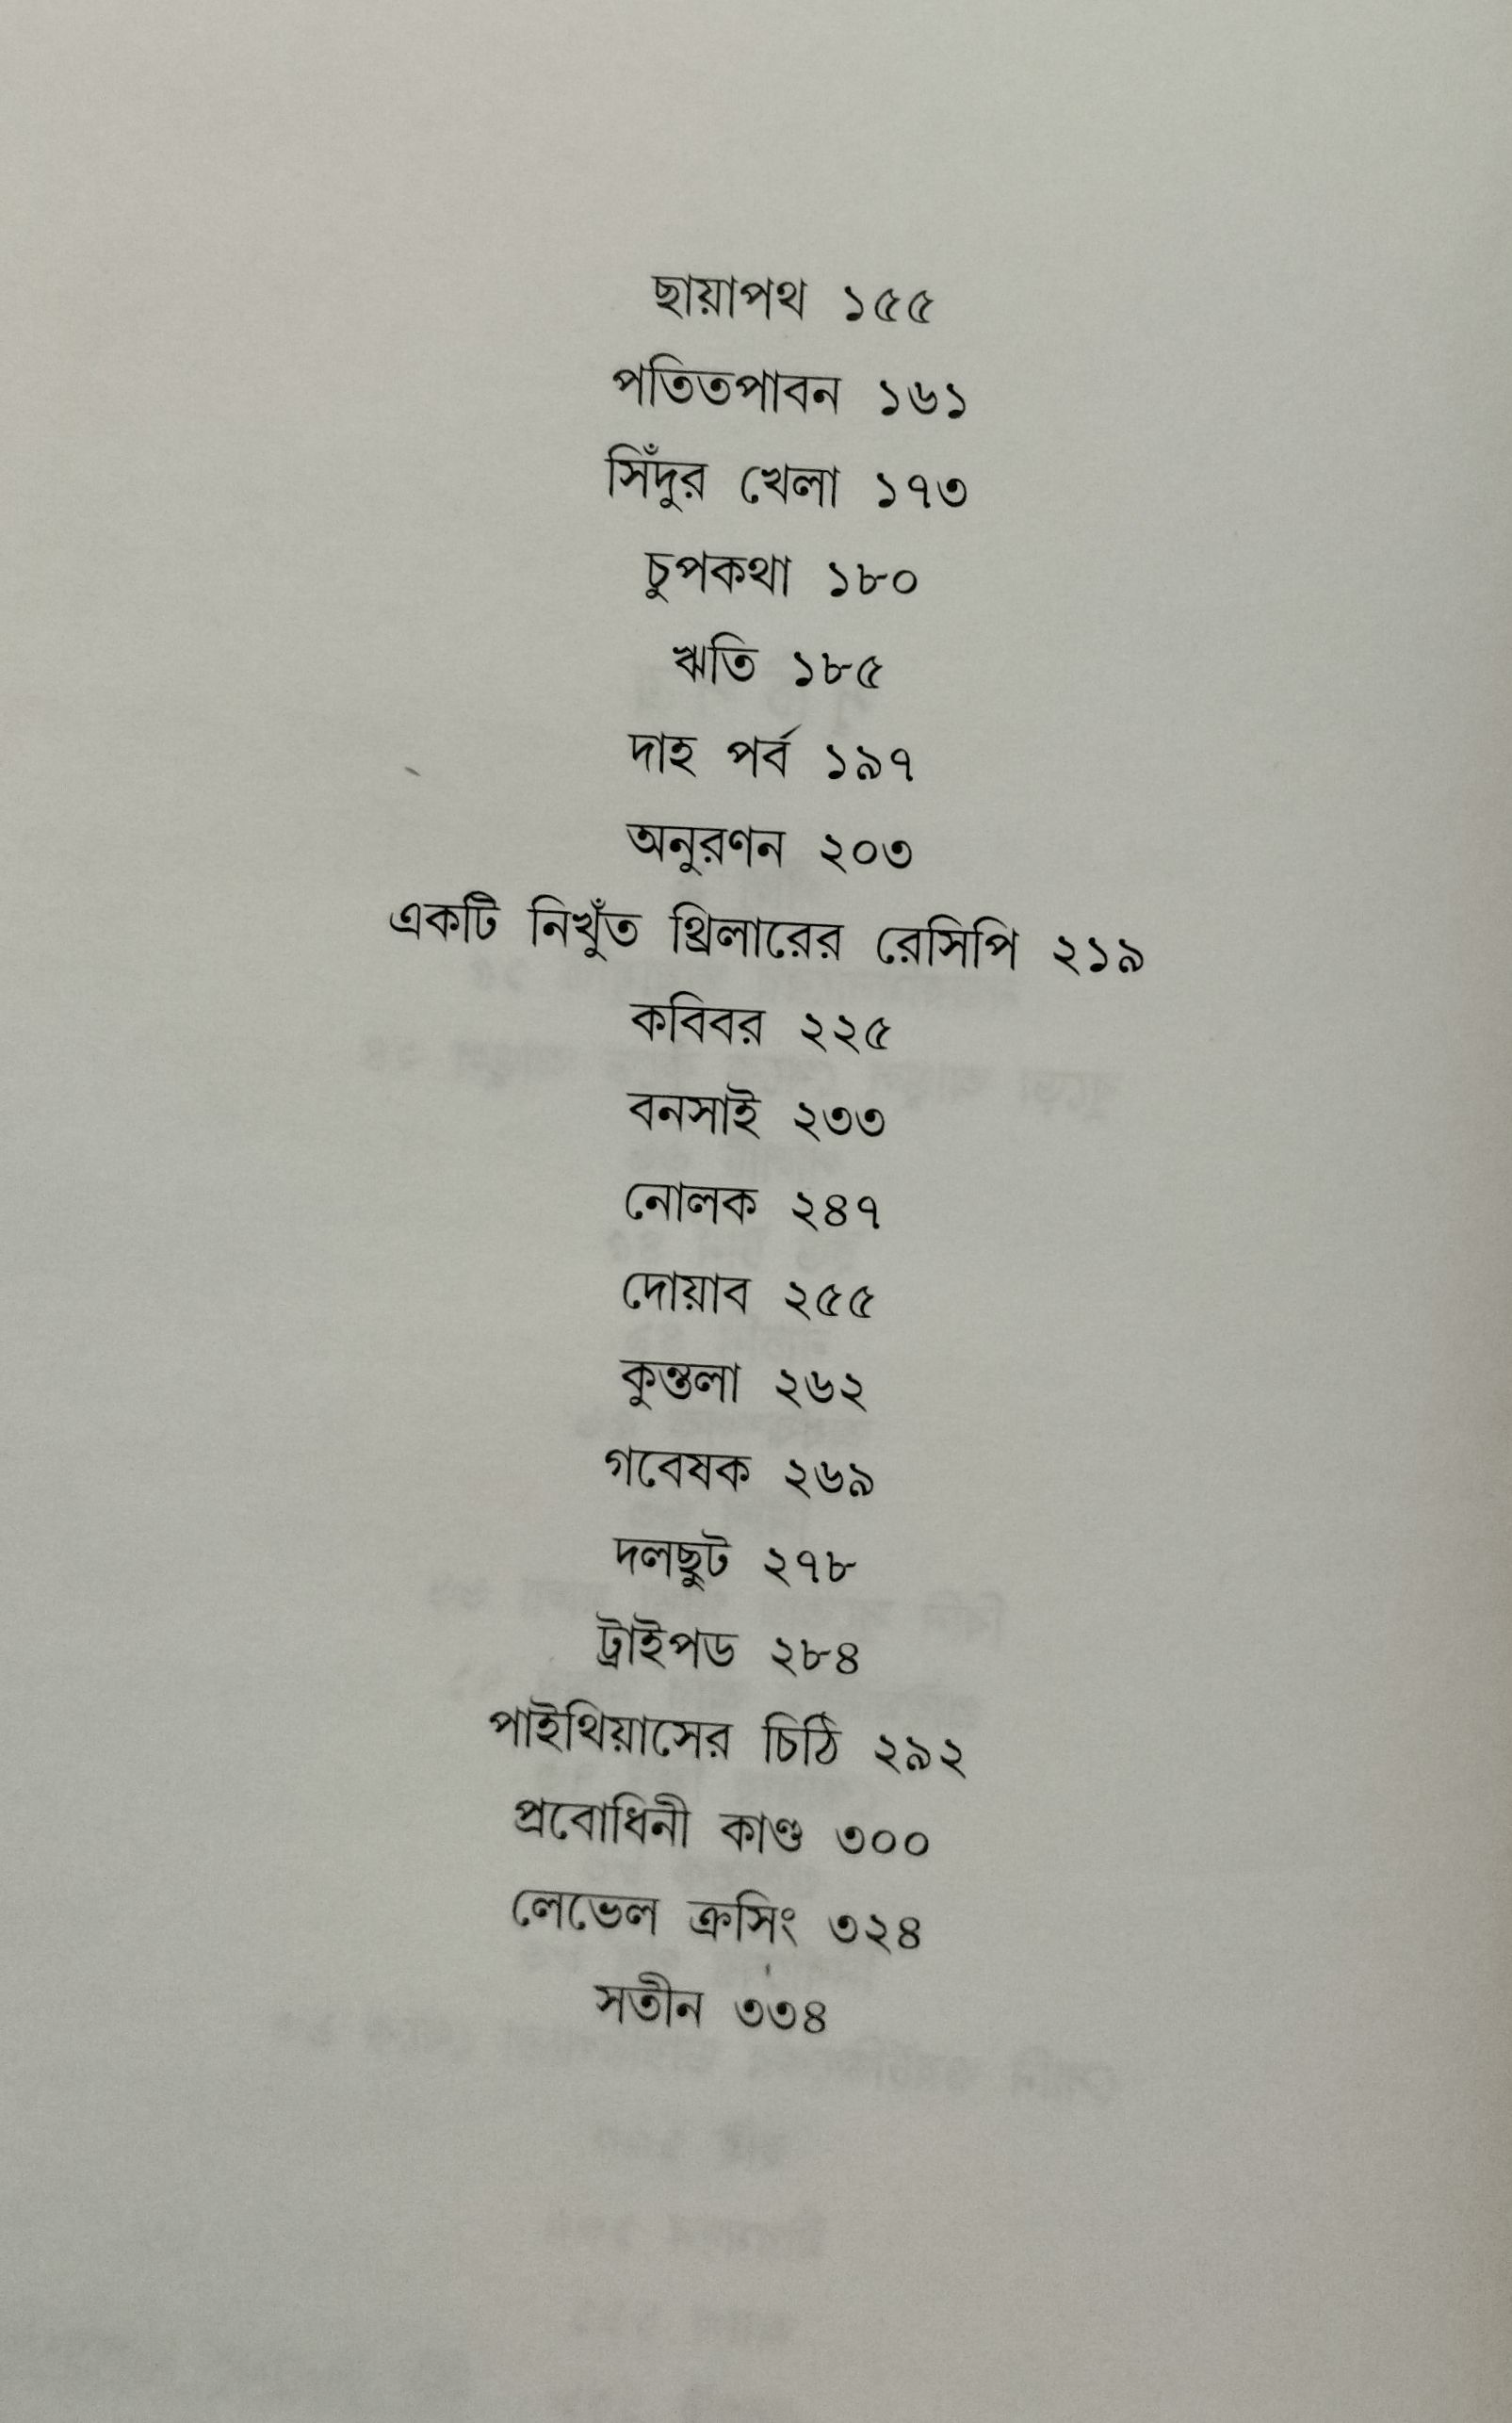 ছায়াপথ ১৫৫
পতিতপাবন ১৬১
সিঁদুর খেলা ১৭৩
চুপকথা ১৮০
ঋতি ১৮৫
দাহ পর্ব ১৯৭
অনুরণন ২০৩
একটি নিখুঁত থ্রিলারের রেসিপি ২১৯
কবিবর ২২৫
বনসাই ২৩৩
নোলক ২৪৭
দোয়াব ২৫৫
কুন্তলা ২৬২
গবেষক ২৬৯
দলছুট ২৭৮
ট্রাইপড ২৮৪
পাইথিয়াসের চিঠি ২৯২
প্রবোধিনী কাণ্ড ৩০০
লেভেল ক্রসিং ৩২৪
সতীন ৩৩৪